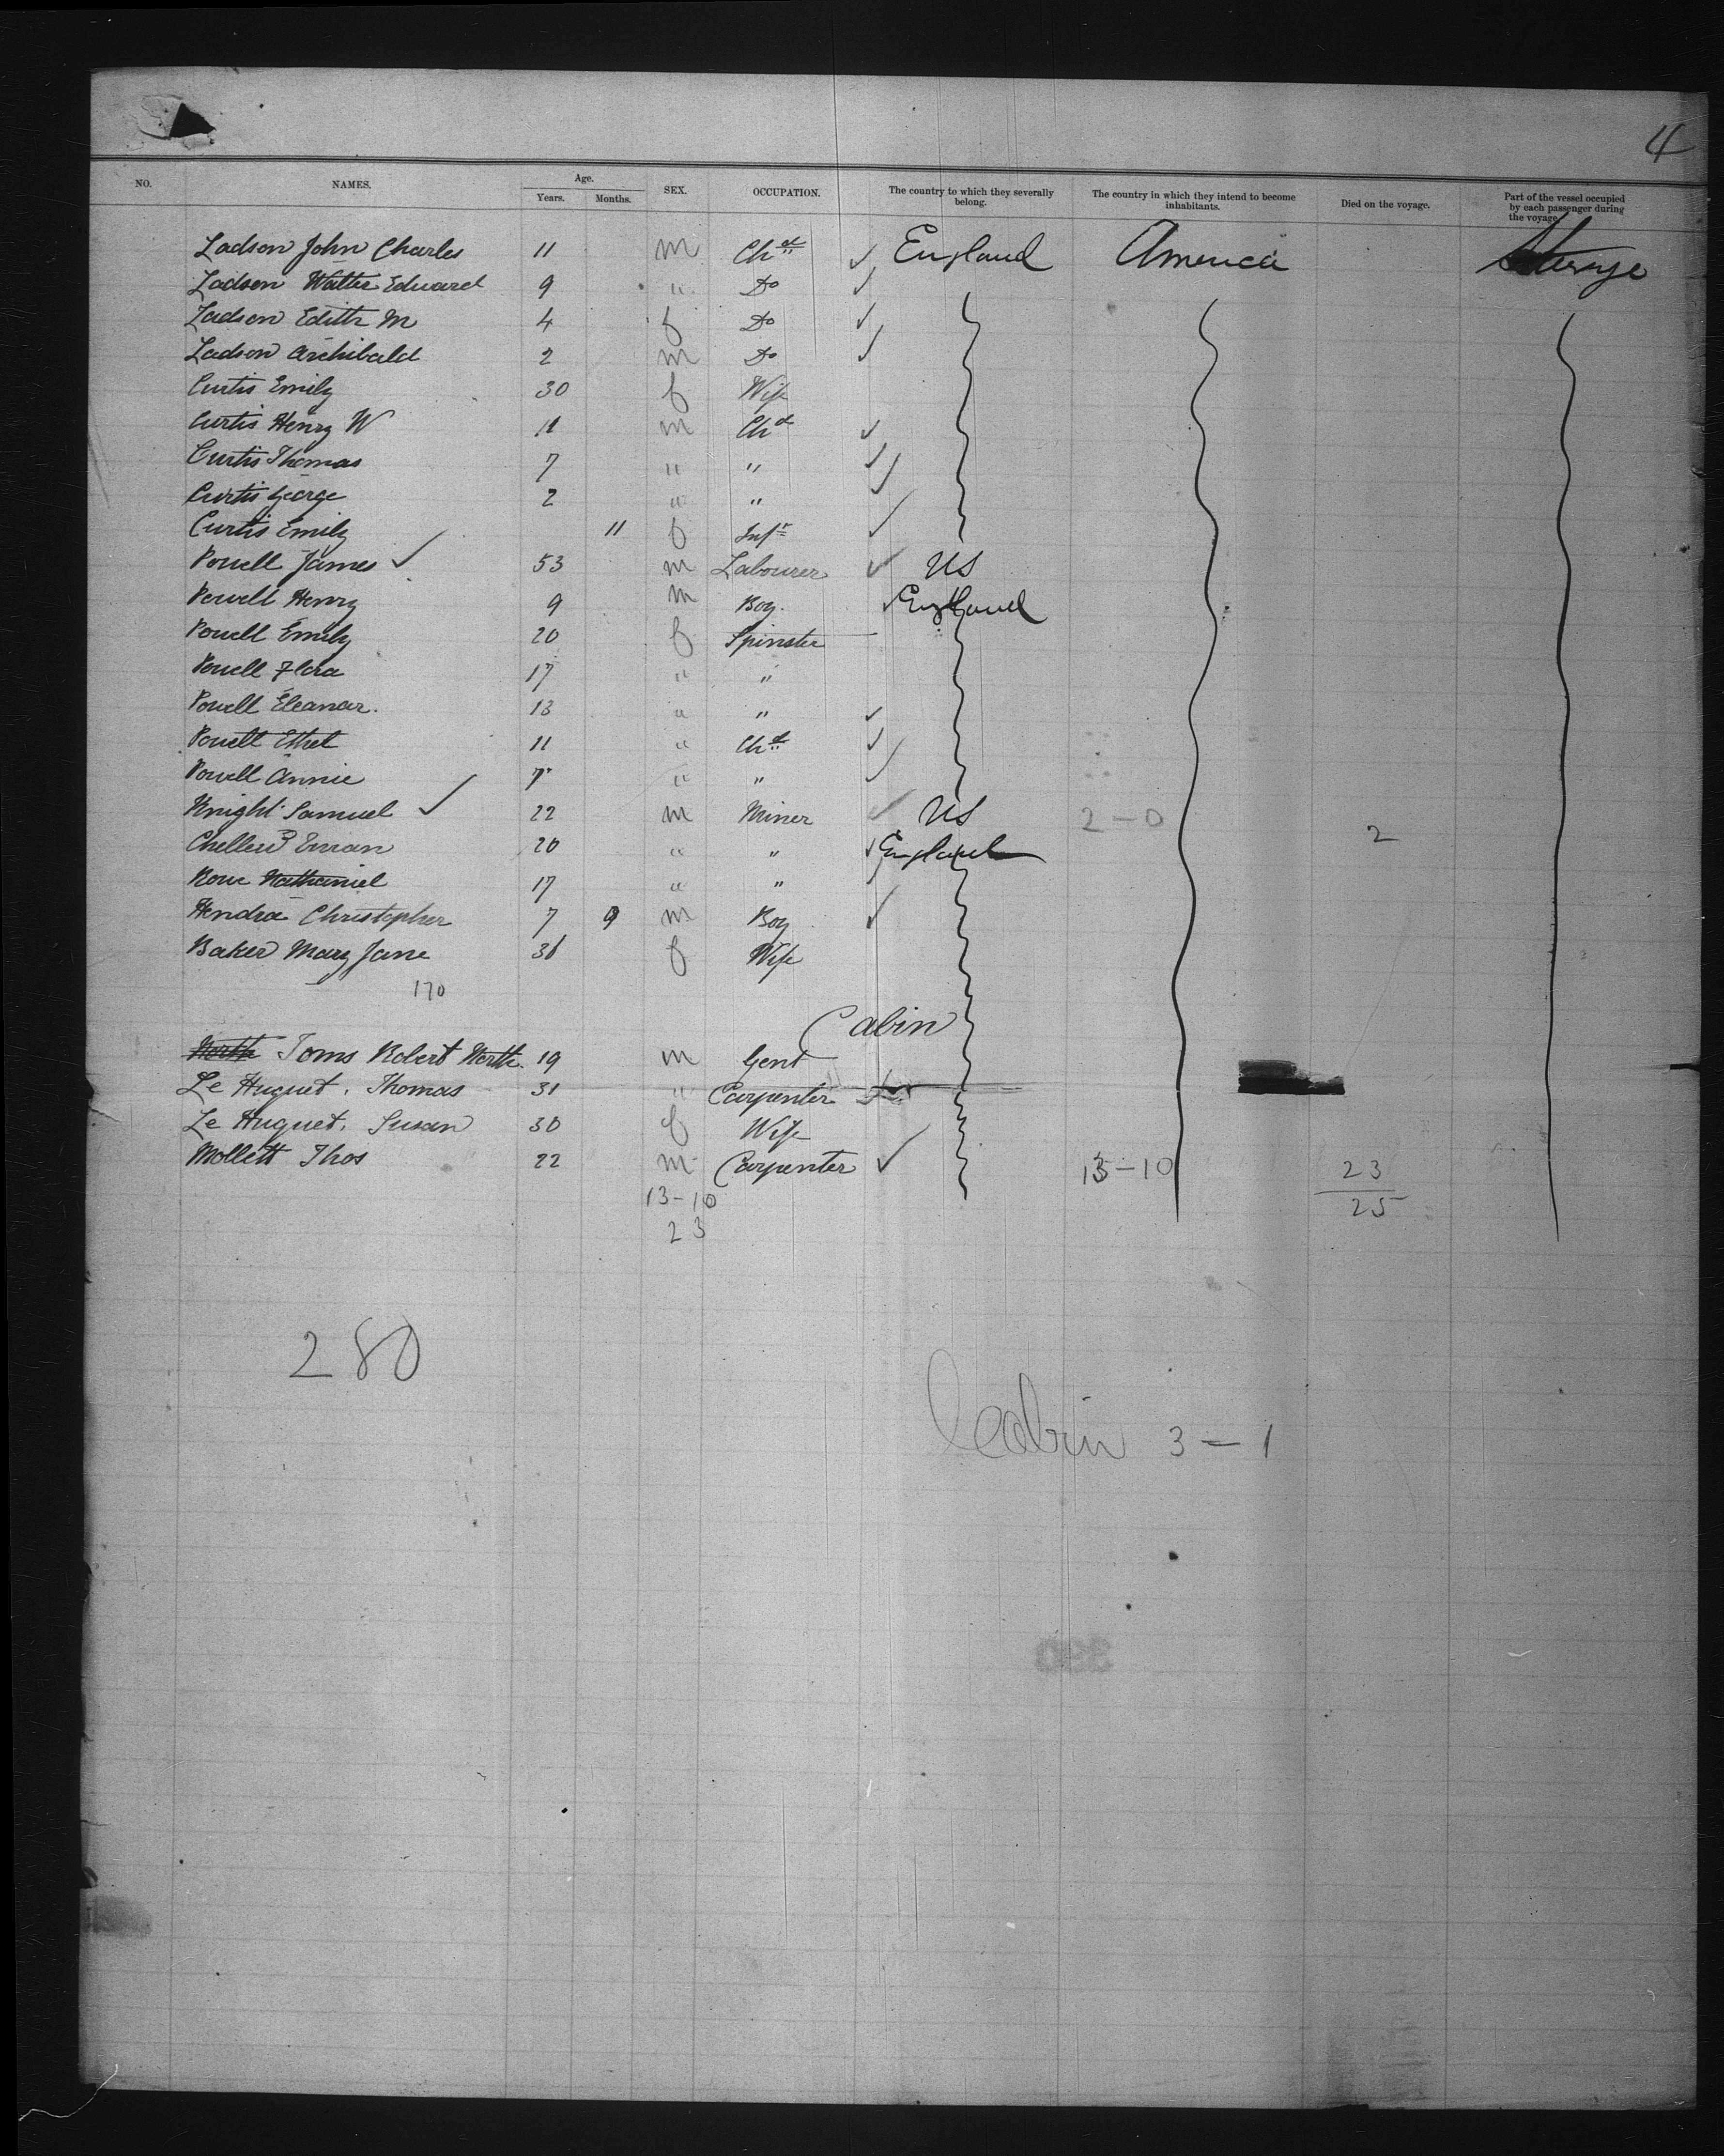 4
NO. NAMES. Age. Years. Months. SEX. OCCUPATION. The country to which they severally belong. The country in which they intend to become inhabitants. Died on the voyage. Part of the vessel occupied by each passenger during the voyage.
Ladson John Charles 11 m Chd ✓ England America Steerage
Ladson Walter Edward 9 " Do ✓
Ladson Edith M 4 f Do ✓
Ladson Archibald 2 m Do ✓
Curtis Emily 30 f Wife
Curtis Henry W 11 m Chd ✓
Curtis Thomas 7 " " ✓
Curtis George 2 " " ✓
Curtis Emily 11 f Inft ✓
Powell James ✓ 53 m Labourer ✓ US
Powell Henry 9 m Boy ✓ England
Powell Emily 20 f Spinster
Powell Flora 17 " "
Powell Eleanor. 13 " " ✓
Powell Ethel 11 " Chd ✓
Powell Annie 7 " " ✓
Knight Samuel ✓ 22 m Miner ✓ US 2-0 2
Chellew 20 " " ✓ England
Rowe Nathaniel 17 " "
Hendra Christopher 7 9 m Boy ✓
Baker Mary Jane 36 f Wife
170
Cabin
North Toms Robert North. 19 m Gent
Le Huquet, Thomas 31 " Carpenter
Le Huquet, Susan 30 f Wife
Mollett Thos 22 m Carpenter ✓ 13-10 23
13-10 25
23
280
Cabin 3-1